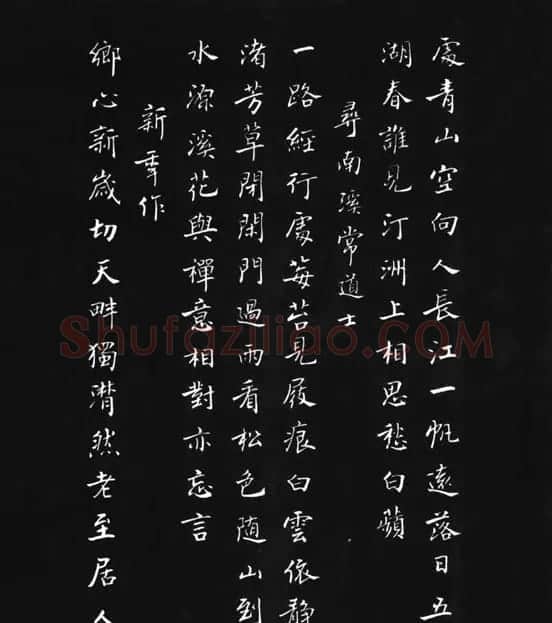 處青山空向人長江一帆遠落日五
湖春誰見汀洲上相思愁白蘋
尋南溪常道士
一路經行處莓苔見屐痕白雲依靜
渚芳草閉閑門過雨看松色随山到
水源溪花與禪意相對亦忘言
新年作
鄉心新歲切天畔獨潸然老至居人
Shufaziliao.com